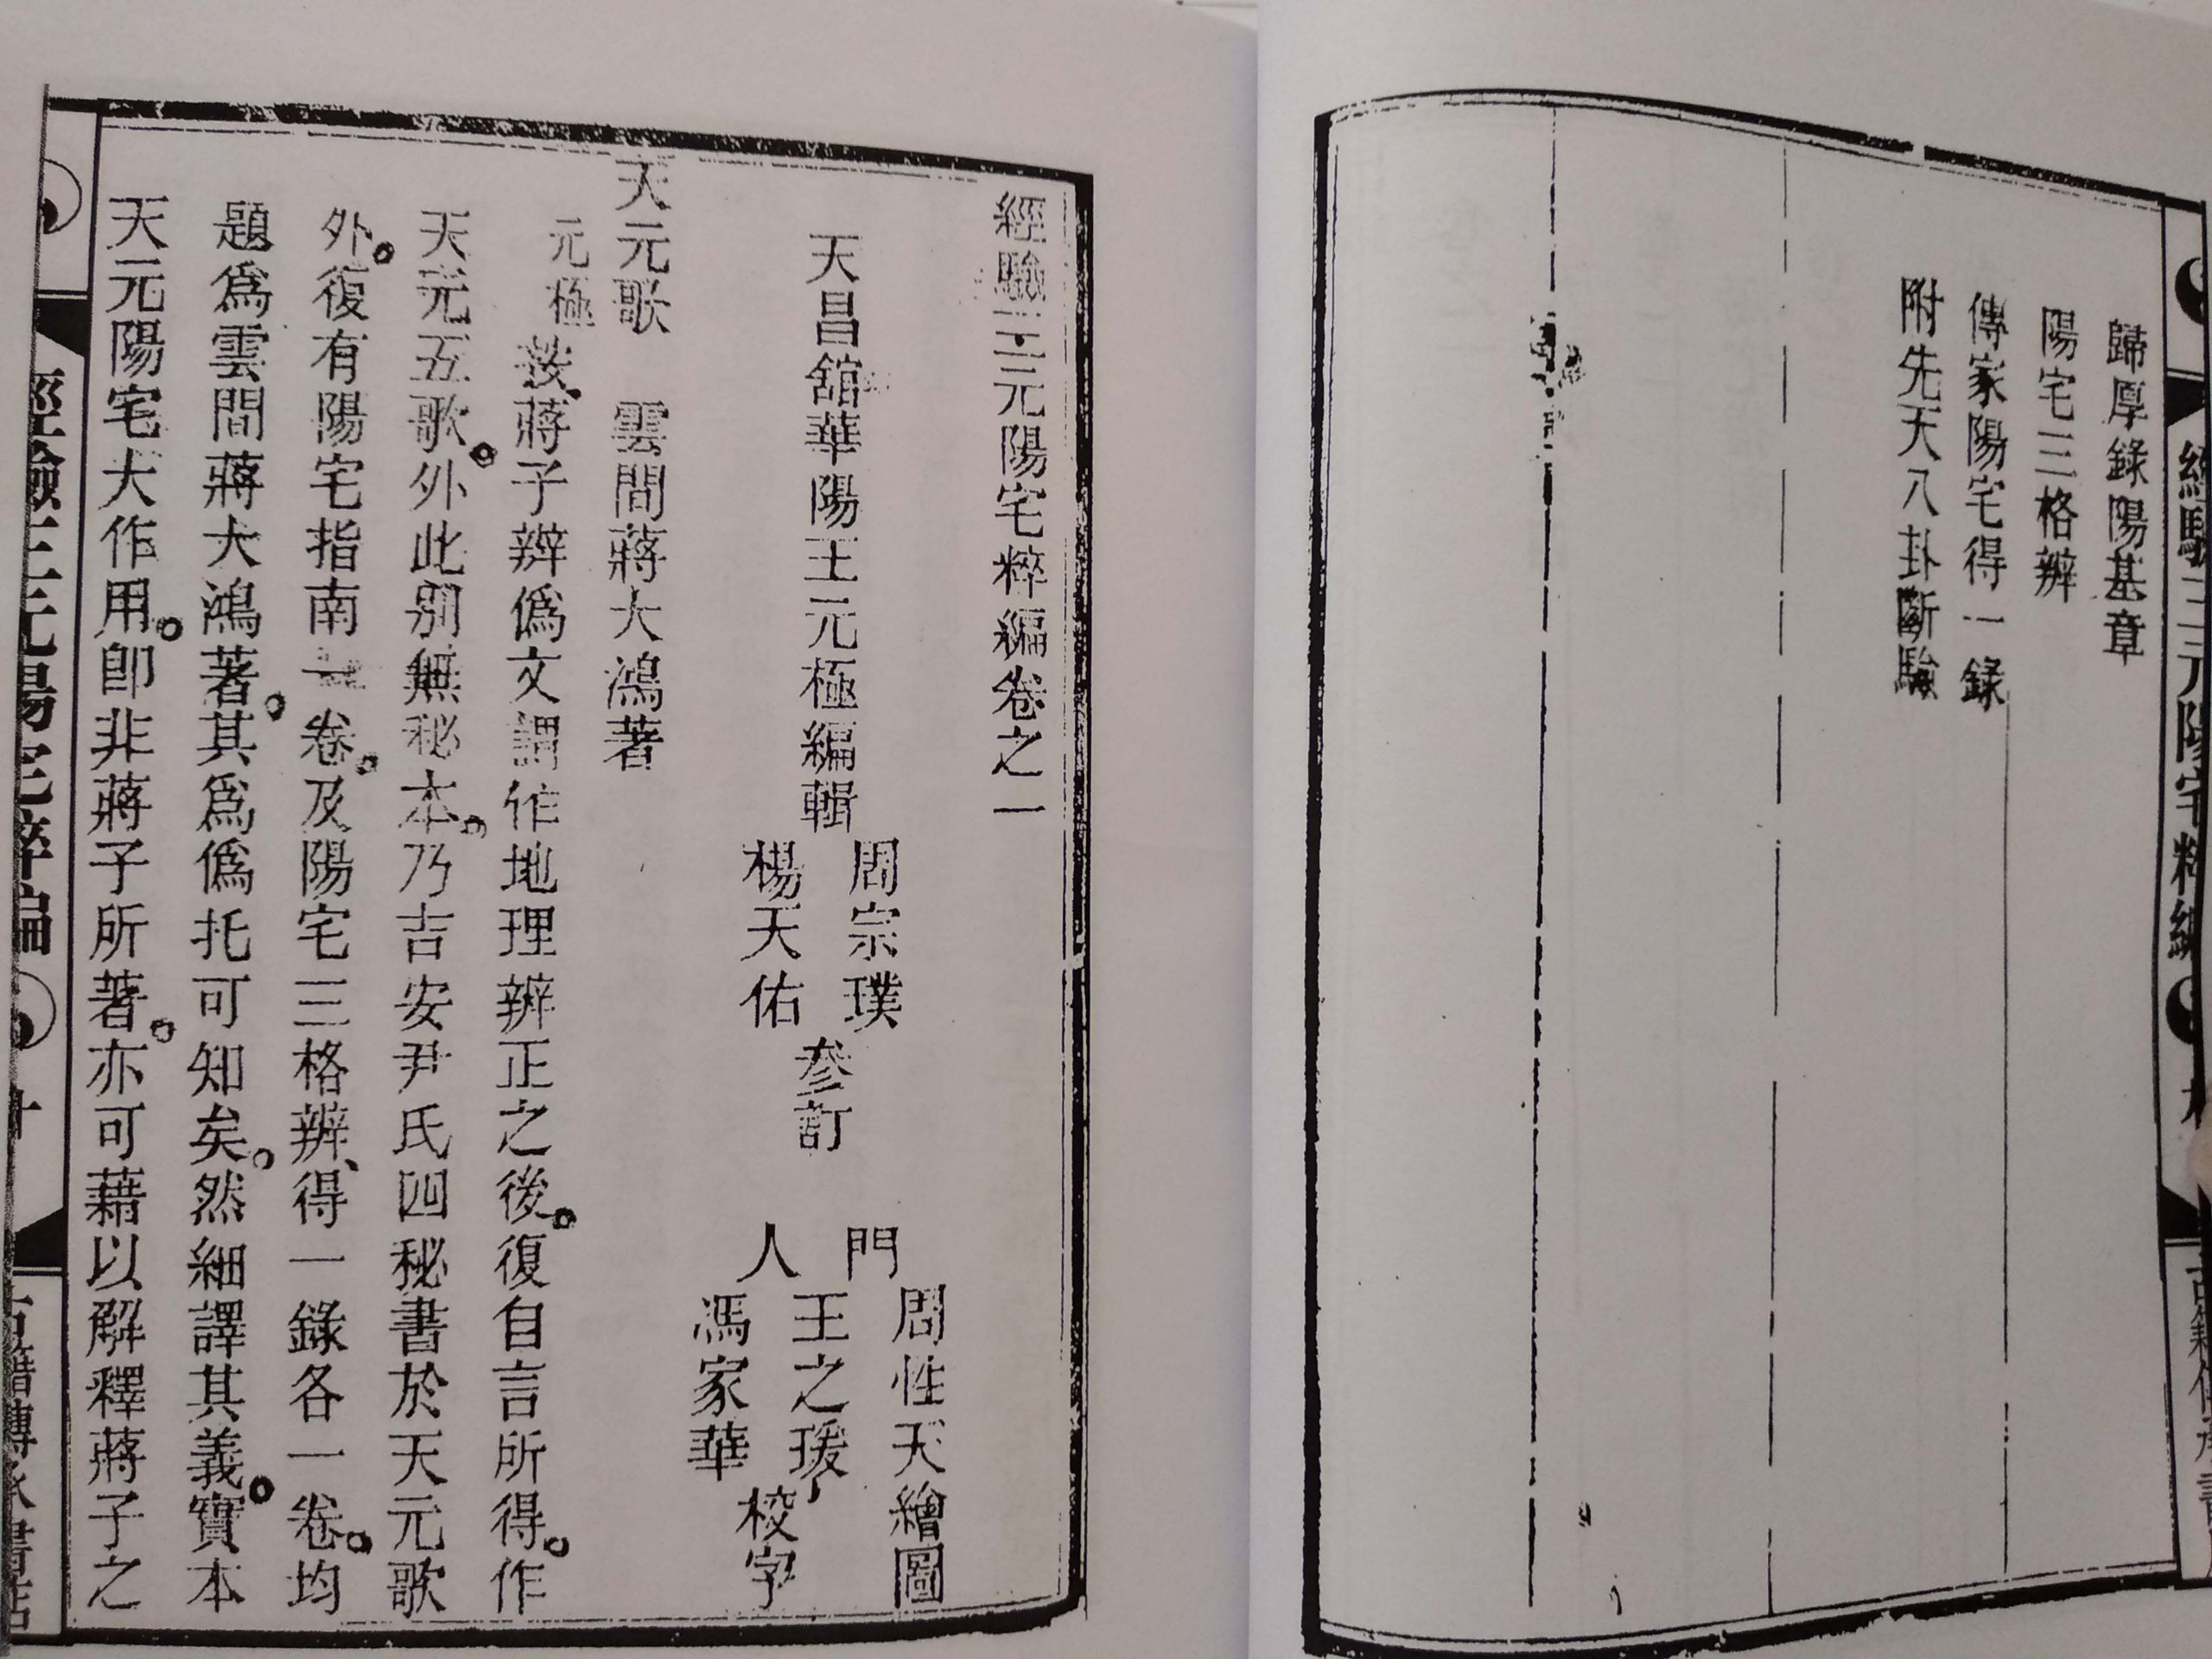 歸厚錄陽基章
陽宅三格辨
傳家陽宅得一錄
附先天八卦斷驗
經驗三元陽宅粹編卷之一
天昌舘華陽王元極編輯
周宗璞
楊天佑
參訂
門
人
周性天繪圖
王之瑗
馮家華
校字
天元歌　雲間蔣大鴻著
元極按蔣子辨僞文謂作地理辨正之後。復自言所得。作
天元五歌。外此別無秘本。乃吉安尹氏四秘書於天元歌
外。復有陽宅指南一卷。及陽宅三格辨、得一錄各一卷。均
題爲雲間蔣大鴻著。其爲僞托可知矣。然細譯其義。實本
天元陽宅大作用。卽非蔣子所著。亦可藉以解釋蔣子之
經驗三元陽宅粹編
十
古籍傳承書店